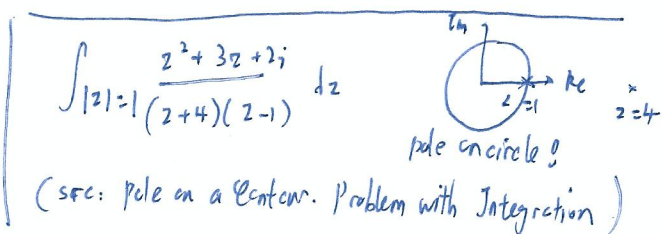 ∫|z|=1 (z²+3z+2i)/((z+4)(z-1)) dz
Im
Re
z=1
z=4
pole on circle!
(src: pole on a Contour. Problem with Integration)